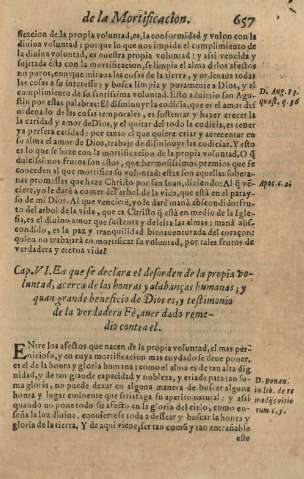 de la Mortificacion. 657
ficacion de la propia voluntad, es, la conformidad y vnion con la
diuina voluntad: porque lo que nos impide el cumplimiento de
la diuina voluntad, es nuestra propia voluntad: y assi vencida y
sujetada esta con la mortificacion, se limpia el alma de los afectos
no puros, con que miraua las cosas de la tierra, y ordenaua todas
las cosas a su interesse: y busca limpia y puramente a Dios, y el
cumplimiento de su santissima voluntad. Esto aduirtio san Agu-
stin por estas palabras: El disminuyr la codicia, que es el amor des
ordenado de las cosas temporales, es sustentar y hazer crecer la
la caridad y amor de Dios, y el quitar del todo la codicia, es tener
ya perfeta caridad: por tanto el que quiere criar y acrecentar en
su alma el amor de Dios, trabaje de disminuyr las codicias. Y esto
es lo que se haze con la mortificacion de la propia voluntad. O q̃
dulcissimos frutos son estos, que hermosissimos premios que se
conceden al que mortifica su voluntad: estas son aquellas sobera-
nas promessas que haze Christo por san Iuan, diziendo: Al q̃ vẽ-
ciere, yo le darè a comer del arbol de la vida, que està en el paray-
so de mi Dios. Al que venciere, yo le darè manà abscondido: fru-
to del arbol de la vida, que es Christo q̃ està en medio de la Igle-
sia, es el diuino amor que sustenta y deleita las almas: manà abs-
condido, es la paz y tranquilidad bienauenturada del coraçon:
quien no trabajarà en mortificar su voluntad, por tales frutos de
verdadera y eterna vida?
D. Aug. 83.
quæst. q. 36
Apoc. c. 2.
Cap. VI. En que se declara el desorden de la propia vo-
luntad, acerca de las honras y alabanças humanas; y
quan grande beneficio de Dios es, y testimonio
de la verdadera Fè, auer dado reme-
dio contra el.
ENtre los afectos que nacen de la propia voluntad, el mas per-
nicioso, y en cuya mortificacion mas cuydado se deue poner,
es el de la honra y gloria humana: como el alma es de tan alta dig
nidad, y de tan grande capacidad y nobleza, y criada para tan su-
ma gloria, no puede dexar en alguna manera de buscar alguna
honra y lugar eminente que satisfaga su aperito natural: y assi
quando no pone todo su afecto en la gloria del cielo, como en-
seña la luz diuina, conuiertese toda a dessear y buscar la honra y
gloria de la tierra. Y de aqui viene, ser tan comũ y tan entrañable
este
D. Bonau.
in lib. de re
medijs vitio
rum c. 5.